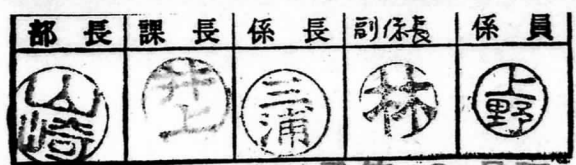 部長 課長 係長 副係長 係員
山崎 井上 三浦 林 上野